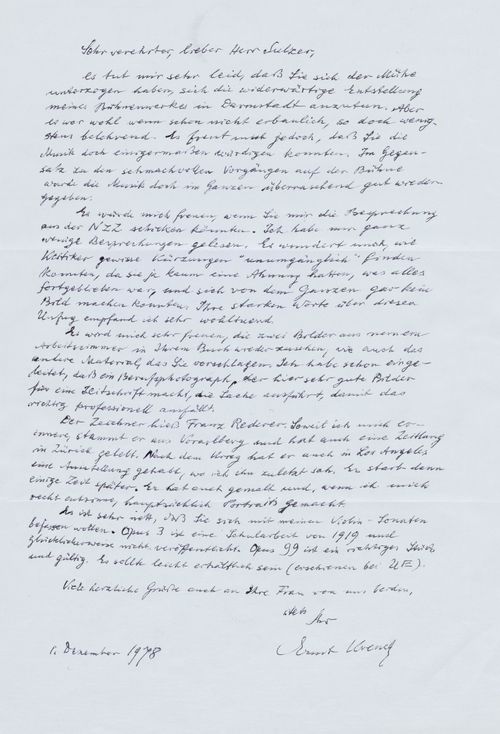 Sehr verehrter, lieber Herr Sulzer,
es tut mir sehr leid, daß Sie sich der Mühe
unterzogen haben, sich die widerwärtige Entstellung
meines Bühnenwerkes in Darmstadt anzutun. Aber
es war wohl wenn schon nicht erbaulich, so doch wenig-
stens belehrend. Es freut mich jedoch, daß Sie die
Musik doch einigermaßen würdigen konnten. Im Gegen-
satz zu den schmachvollen Vorgängen auf der Bühne
wurde die Musik doch im Ganzen überraschend gut wieder-
gegeben.
Es würde mich freuen, wenn Sie mir die Besprechung
aus der NZZ schicken könnten. Ich habe nur ganz
wenige Besprechungen gelesen. Es wundert mich, wie
Kritiker gewisse Kürzungen "unumgänglich" finden
konnten, da sie ja kaum eine Ahnung hatten, was alles
fortgeblieben war, und sich von dem Ganzen gar kein
Bild machen konnten. Ihre starken Worte über diesen
Unfug empfand ich sehr wohltuend.
Es wird mich sehr freuen, die zwei Bilder aus meinem
Arbeitszimmer in Ihrem Buch wiederzusehen, wie auch das
andere Material, das Sie vorschlagen. Ich habe schon einge-
leitet, daß ein Berufsphotograph, der hier sehr gute Bilder
für eine Zeitschrift macht, die Sache ausführt, damit das
richtig professionell ausfällt.
Der Zeichner hieß Franz Rederer. Soweil ich mich er-
innere, stammt er aus Vorarlberg und hat auch eine Zeitlang
in Zürich gelebt. Nach dem Krieg hat er auch in Los Angeles
eine Ausstellung gehabt, wo ich ihn zuletzt sah. Er starb dann
einige Zeit später. Er hat auch gemalt und, wenn ich mich
recht entsinne, hauptsächlich Portraits gemacht.
Es ist sehr nett, daß Sie sich mit meinen Violin-Sonaten
befassen wollen. Opus 3 ist eine Schularbeit von 1919 und
glücklicherweise nicht veröffentlicht. Opus 99 ist ein richtiges Stück
und gültig. Es sollte leicht erhältlich sein (erschienen bei UE).
Viele herzliche Grüße auch an Ihre Frau von uns beiden,
stets
Ihr
Ernst Krenek
1. Dezember 1978